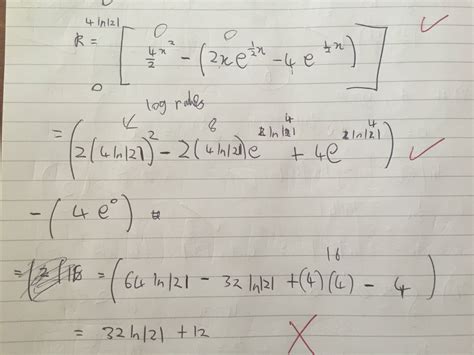 4ln|2|
R = [ 4/2 x² - (2xe^{½x} - 4e^{½x}) ]
0 0
0
log rules
= (2(4ln|2|)² - 2(4ln|2|)e^{2ln|2|} + 4e^{2ln|2|}) ✓
8 4 4
- (4e⁰)
= (64ln|2| - 32ln|2| + (4)(4) - 4)
16
= 32ln|2| + 12 ✗